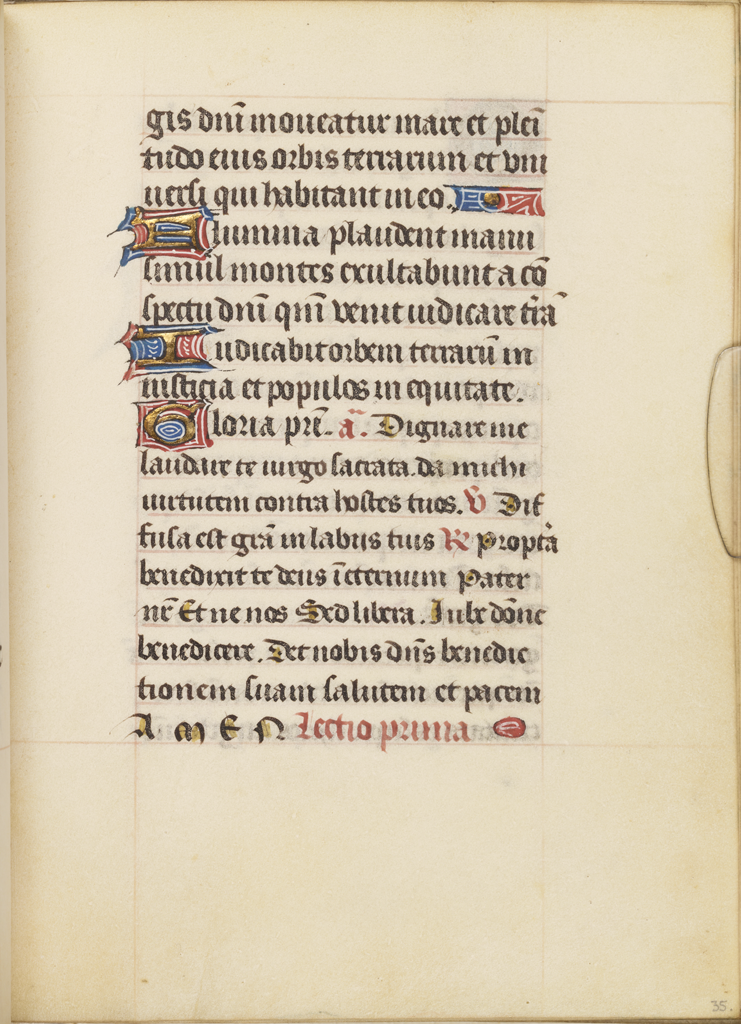 gis dnī moueatur mare et plei
tudo eius orbis terrarum et vni
uersi qui habitant in eo.
Flumina plaudent manu
simul montes exultabunt a cō
spectu dnī qm̄ venit iudicare t̄rā
Iudicabit orbem terrarū in
iusticia et populos in equitate.
Gloria pr̄i. a. Dignare me
laudare te uirgo sacrata. da michi
uirtutem contra hostes tuos. V Dif
fusa est gr̄a in labiis tuis R propt̄a
benedixit te deus ī eternum Pater
nr̄ Et ne nos Sed libera. Iube dōne
benedicere. Det nobis dn̄s benedic
tionem suam salutem et pacem
A M E N Lectio prima
35.